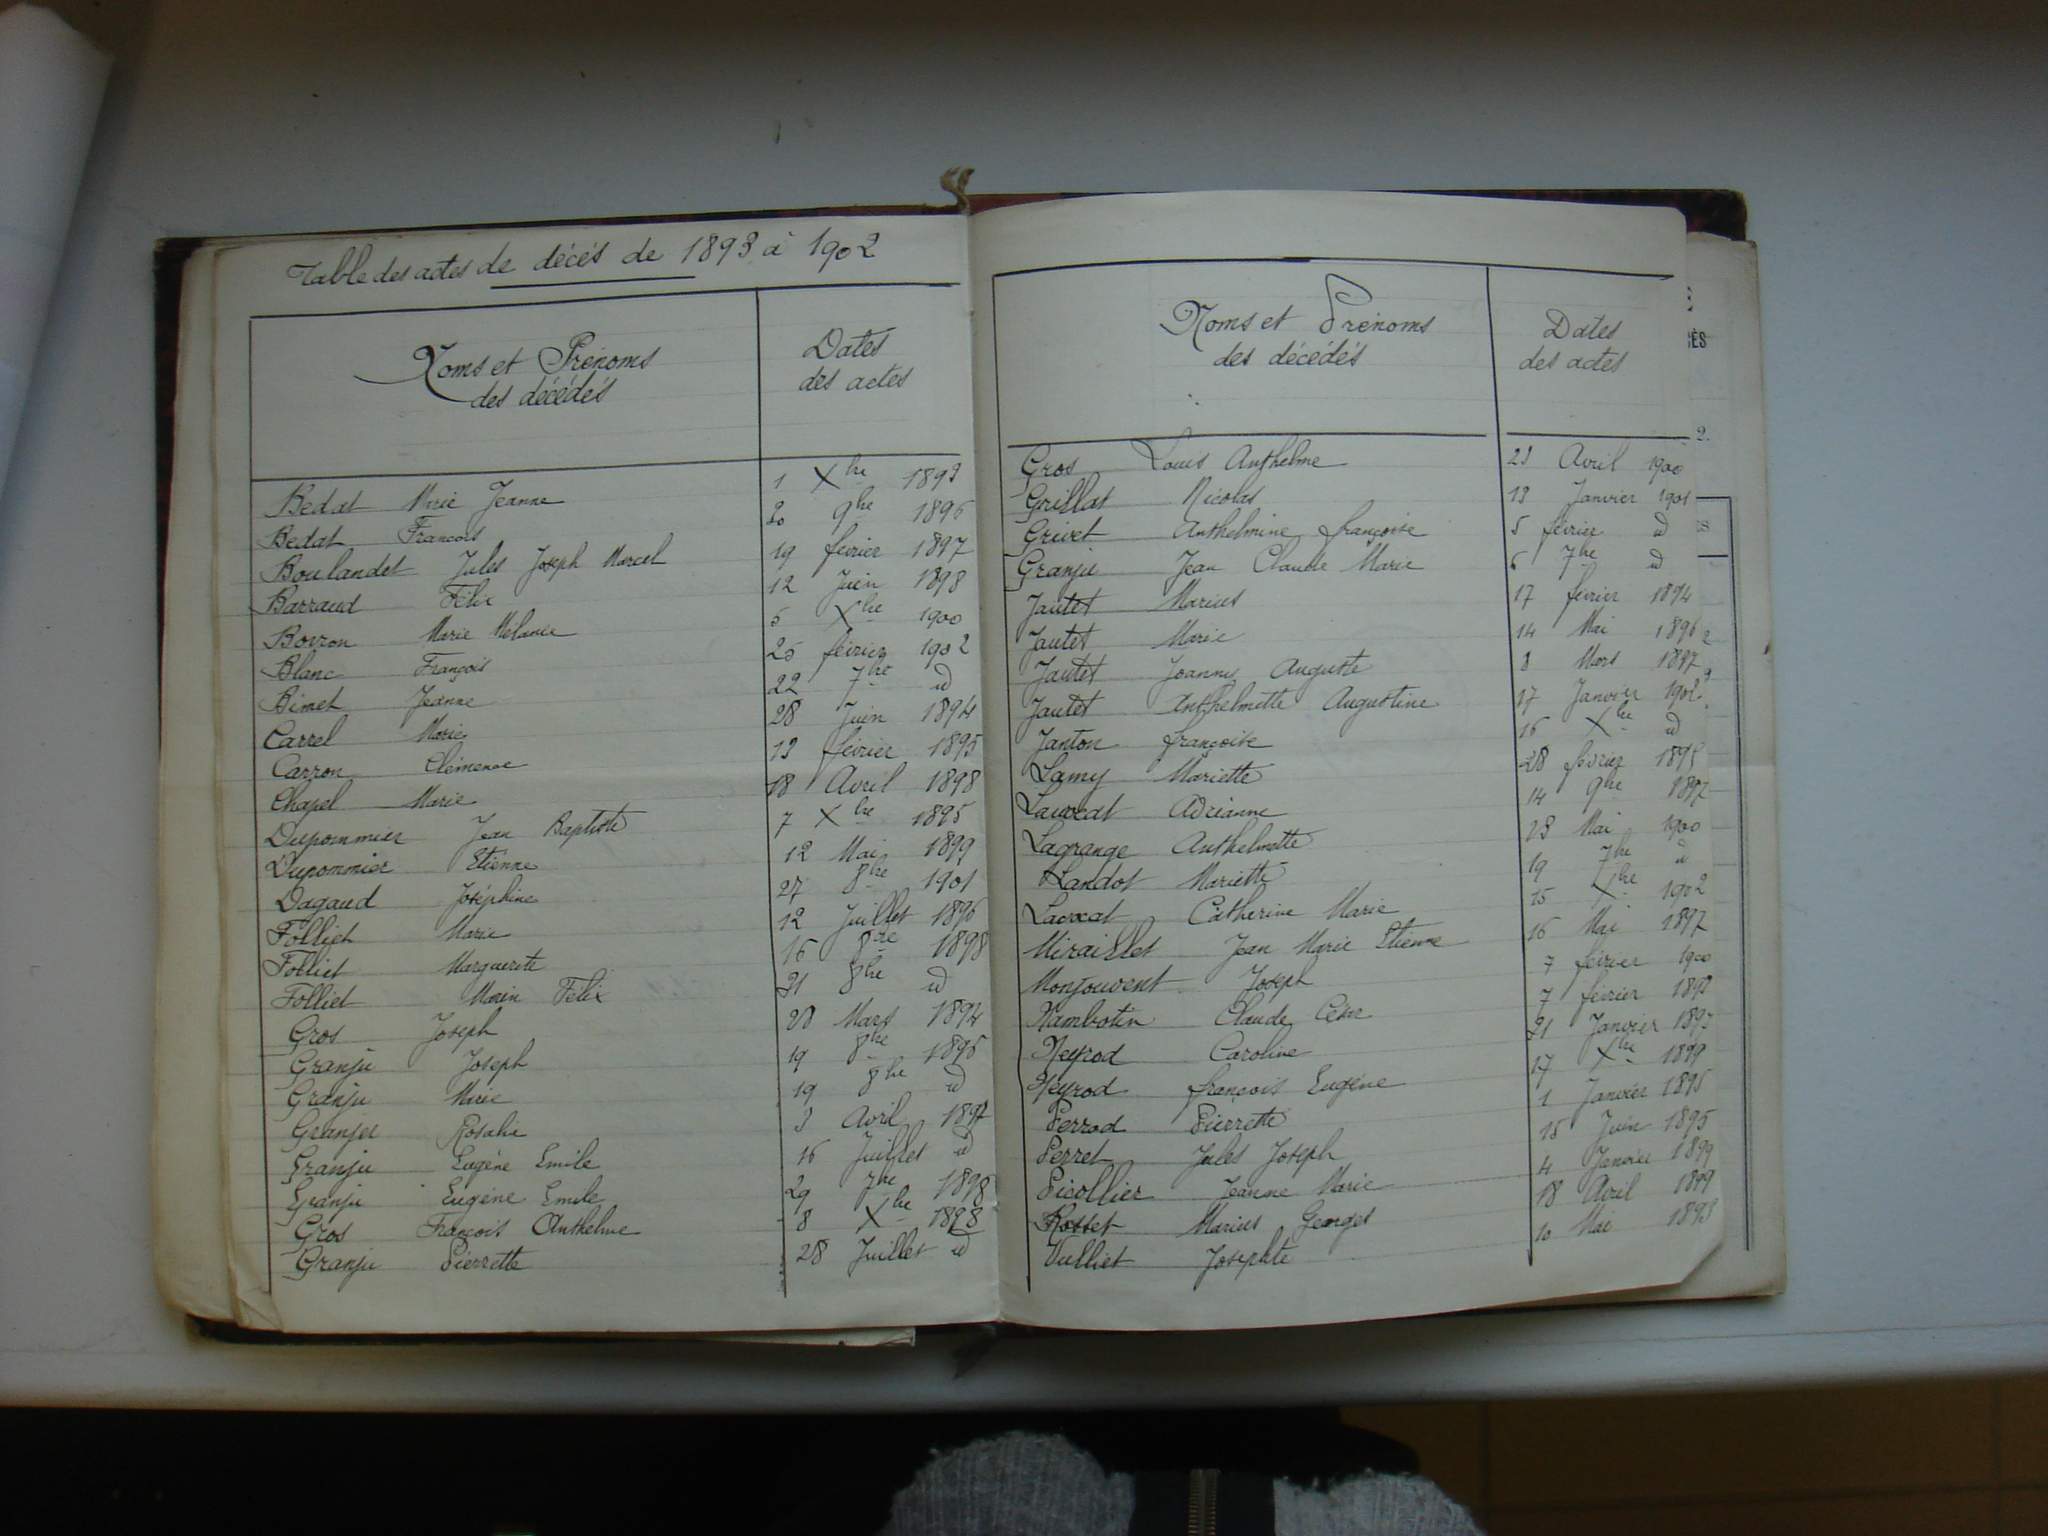 Table des actes de décés de 1893 à 1902
Noms et Prénoms
des décédés
Dates
des actes
Bedat Marie Jeanne 1 Xbre 1893
Bedat François 20 9bre 1896
Boulandet Jules Joseph Marcel 19 février 1897
Barraud Félix 12 Juin 1898
Bovron Marie Mélanie 5 Xbre 1900
Blanc François 25 février 1902
Bimet Jeanne 22 7bre id
Carrel Marie 28 Juin 1894
Carron Clémence 13 février 1895
Chapel Marie 18 Avril 1898
Dupommier Jean Baptiste 7 Xbre 1895
Dupommier Etienne 12 Mai 1899
Dagaud Joséphine 27 8bre 1901
Folliet Marie 12 Juillet 1896
Folliet Marguerite 16 8bre 1898
Folliet Marin Félix 31 8bre id
Gros Joseph 28 Mars 1894
Granju Joseph 19 8bre 1895
Granju Marie 19 8bre id
Granjer Rosalie 3 Avril 1897
Granju Eugéne Emile 16 Juillet id
Granju Eugéne Emile 29 7bre 1898
Gros François Anthelme 8 Xbre 1898
Granju Pierrette 28 Juillet id
Noms et Prénoms
des décédés
Dates
des actes
Gros Louis Anthelme 23 Avril 1900
Grillat Nicolas 13 Janvier 1901
Grivet Anthelmine françoise 5 février id
Granju Jean Claude Marie 6 7bre id
Jautet Marius 17 février 1894
Jautet Marie 14 Mai 1896
Jautet Joannes Auguste 8 Mars 1897
Jautet Anthelmette Augustine 17 Janvier 1902
Janton françoise 16 Xbre id
Lamy Mariette 28 février 1895
Lavocat Adrianne 14 9bre 1897
Lagrange Anthelmette 23 Mai 1900
Landot Mariette 19 7bre id
Lavocat Catherine Marie 15 Xbre 1902
Miraillet Jean Marie Etienne 16 Mai 1897
Monjouvent Joseph 7 février 1900
Nambotin Claude César 7 février 1893
Neyrod Caroline 21 Janvier 1897
Neyrod françois Eugéne 17 Xbre 1899
Perrod Pierrette 1 Janvier 1895
Perret Jules Joseph 15 Juin 1895
Picollier Jeanne Marie 4 Janvier 1899
Rosset Marius Georges 18 Avril 1899
Vulliet Josephte 10 Mai 1893
ÈS
2.